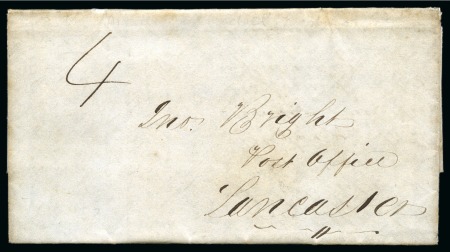 4
Jno. Bright
Post Office
Lancaster